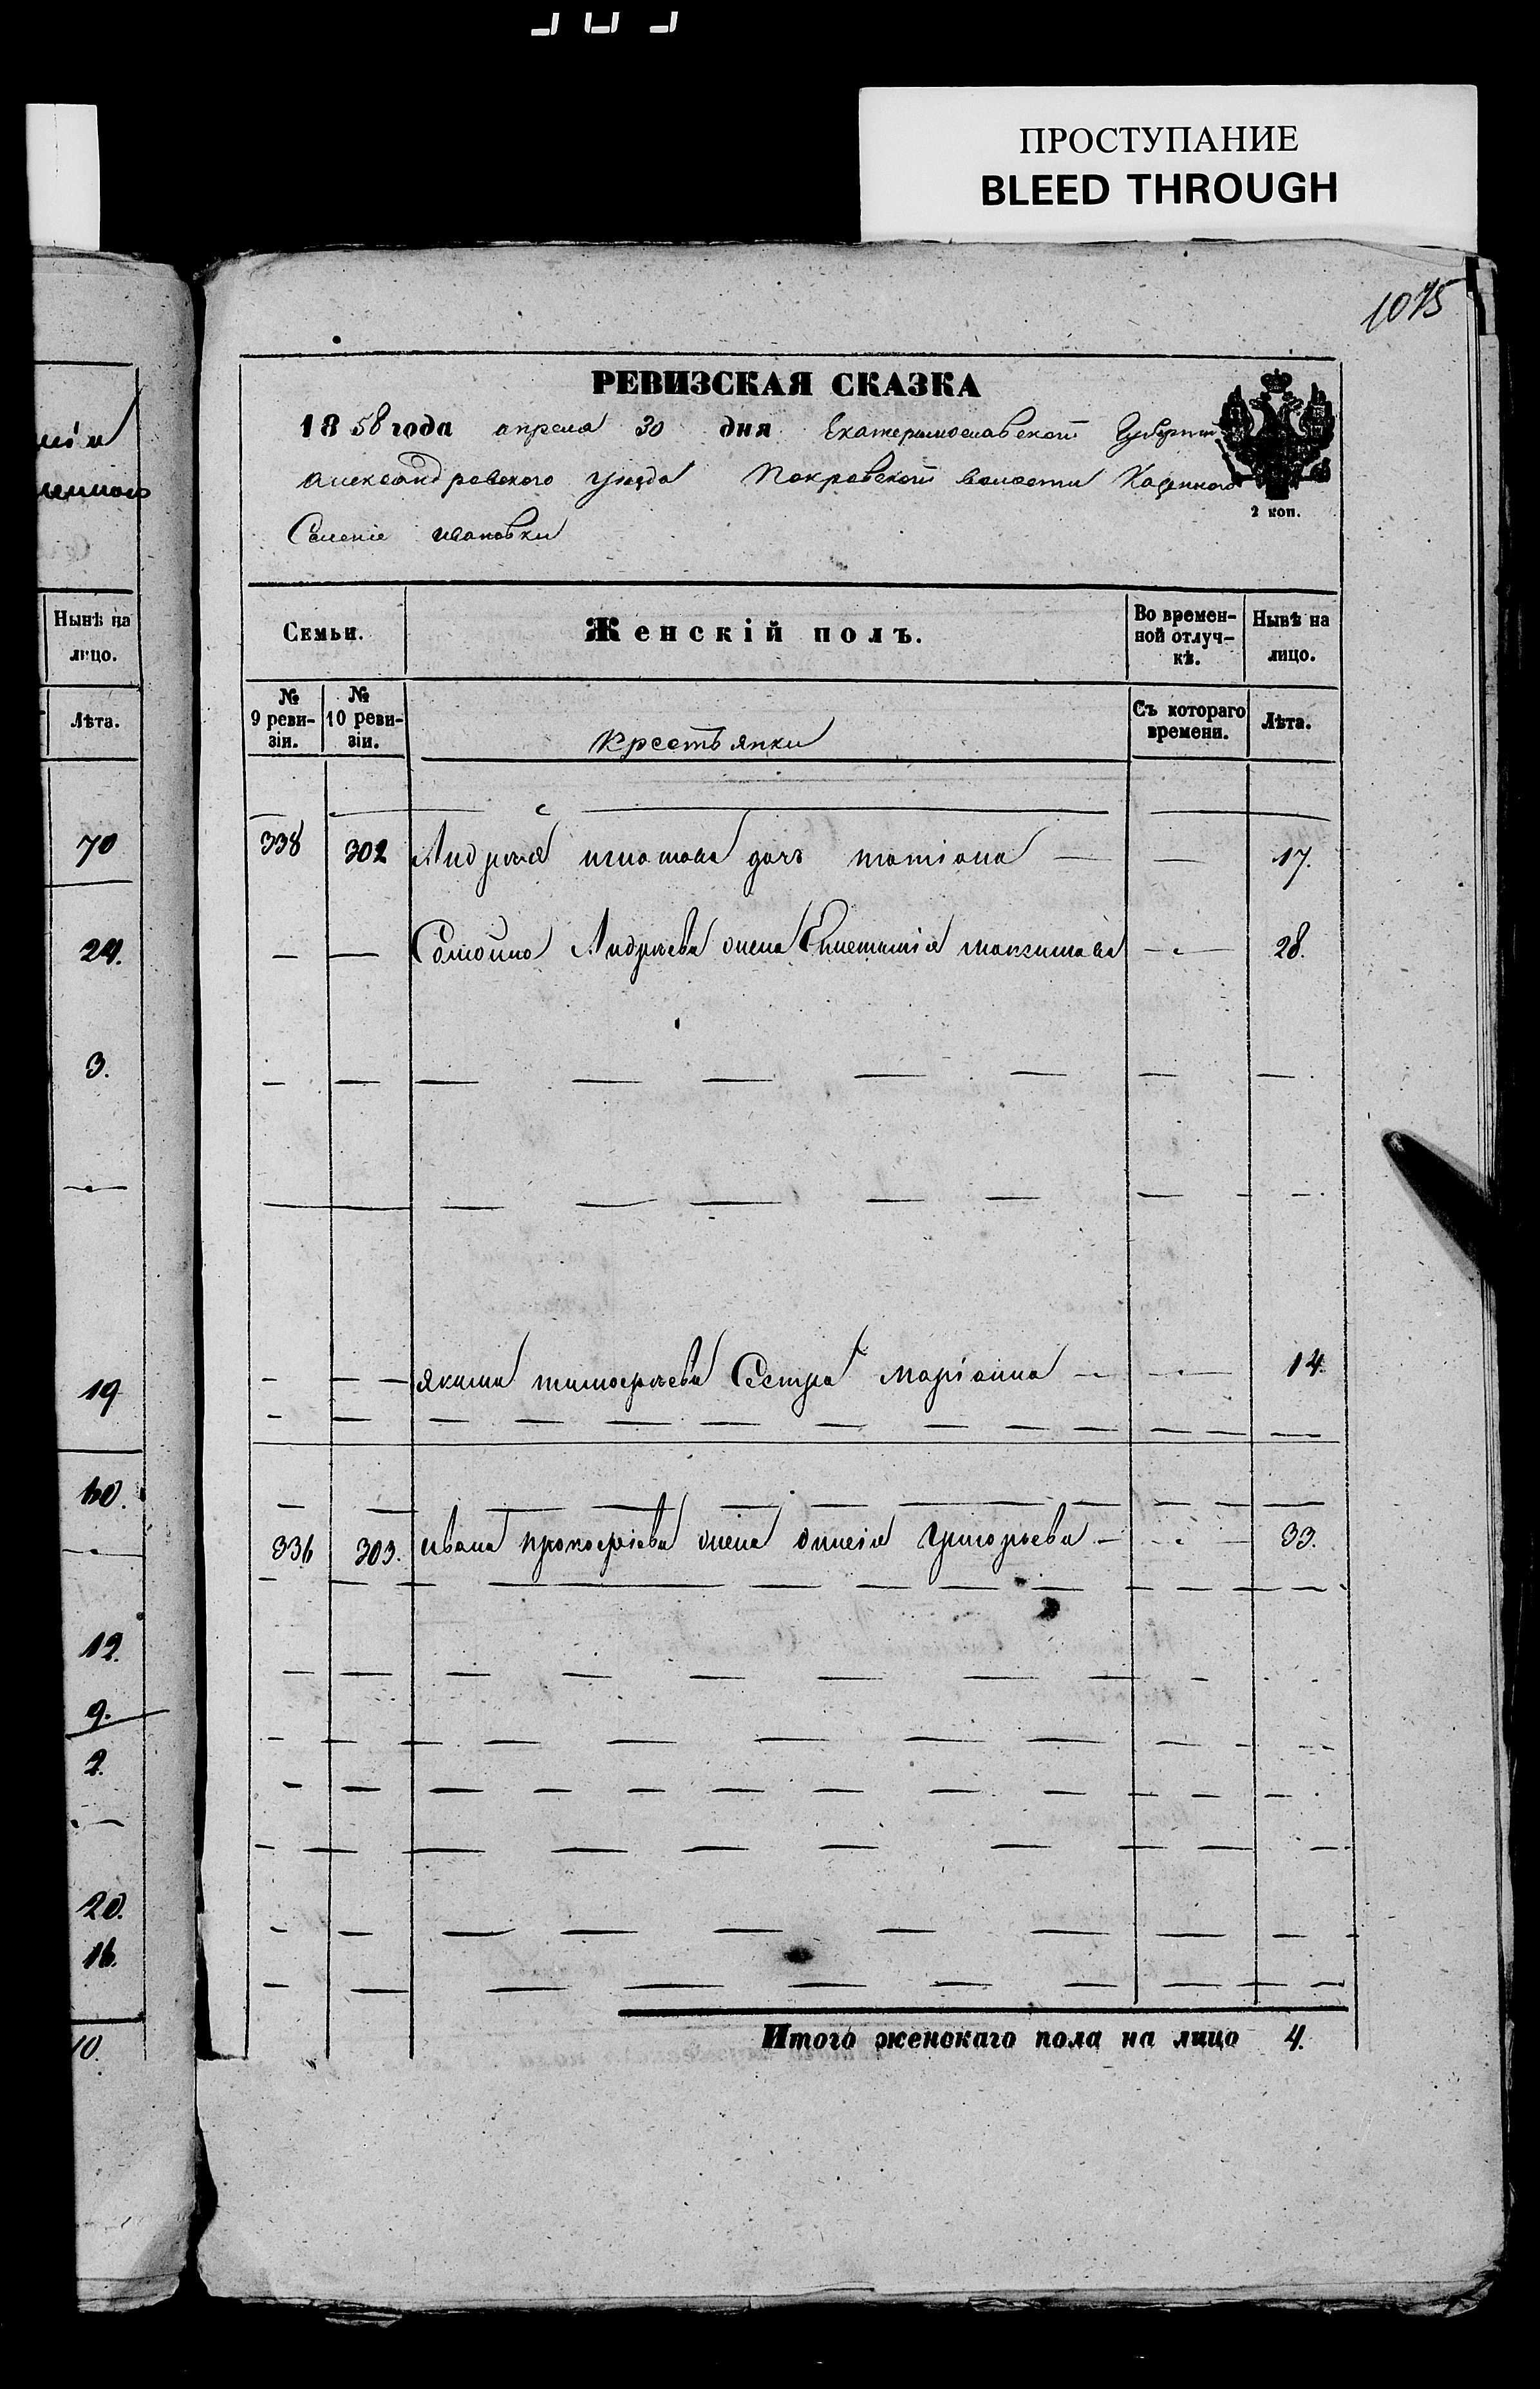 ПРОСТУПАНИЕ
BLEED THROUGH
1075
РЕВИЗСКАЯ СКАЗКА
1858 года апреля 30 дня Екатеринославской Губерніи
Александровского уезда Покровской волости Казенного
Селенія Ивановки
2 коп.
Семьи. Женскій полъ. Во временной отлучкѣ. Нынѣ на лицо.
№ 9 ревизіи. № 10 ревизіи. Крестьянки Съ котораго времени. Лѣта.
338 302 Андрея игнатова дочь татіана 17.
Андрѣева жена максимова 28.
якима тимофѣева Сестра маріанна 14.
336 303. ивана прокофіева жена Григорьева 33.
Итого женскаго пола на лицо 4.
Нынѣ на лицо.
Лѣта.
70
24.
3.
19
60.
12.
9.
2.
20.
16.
10.